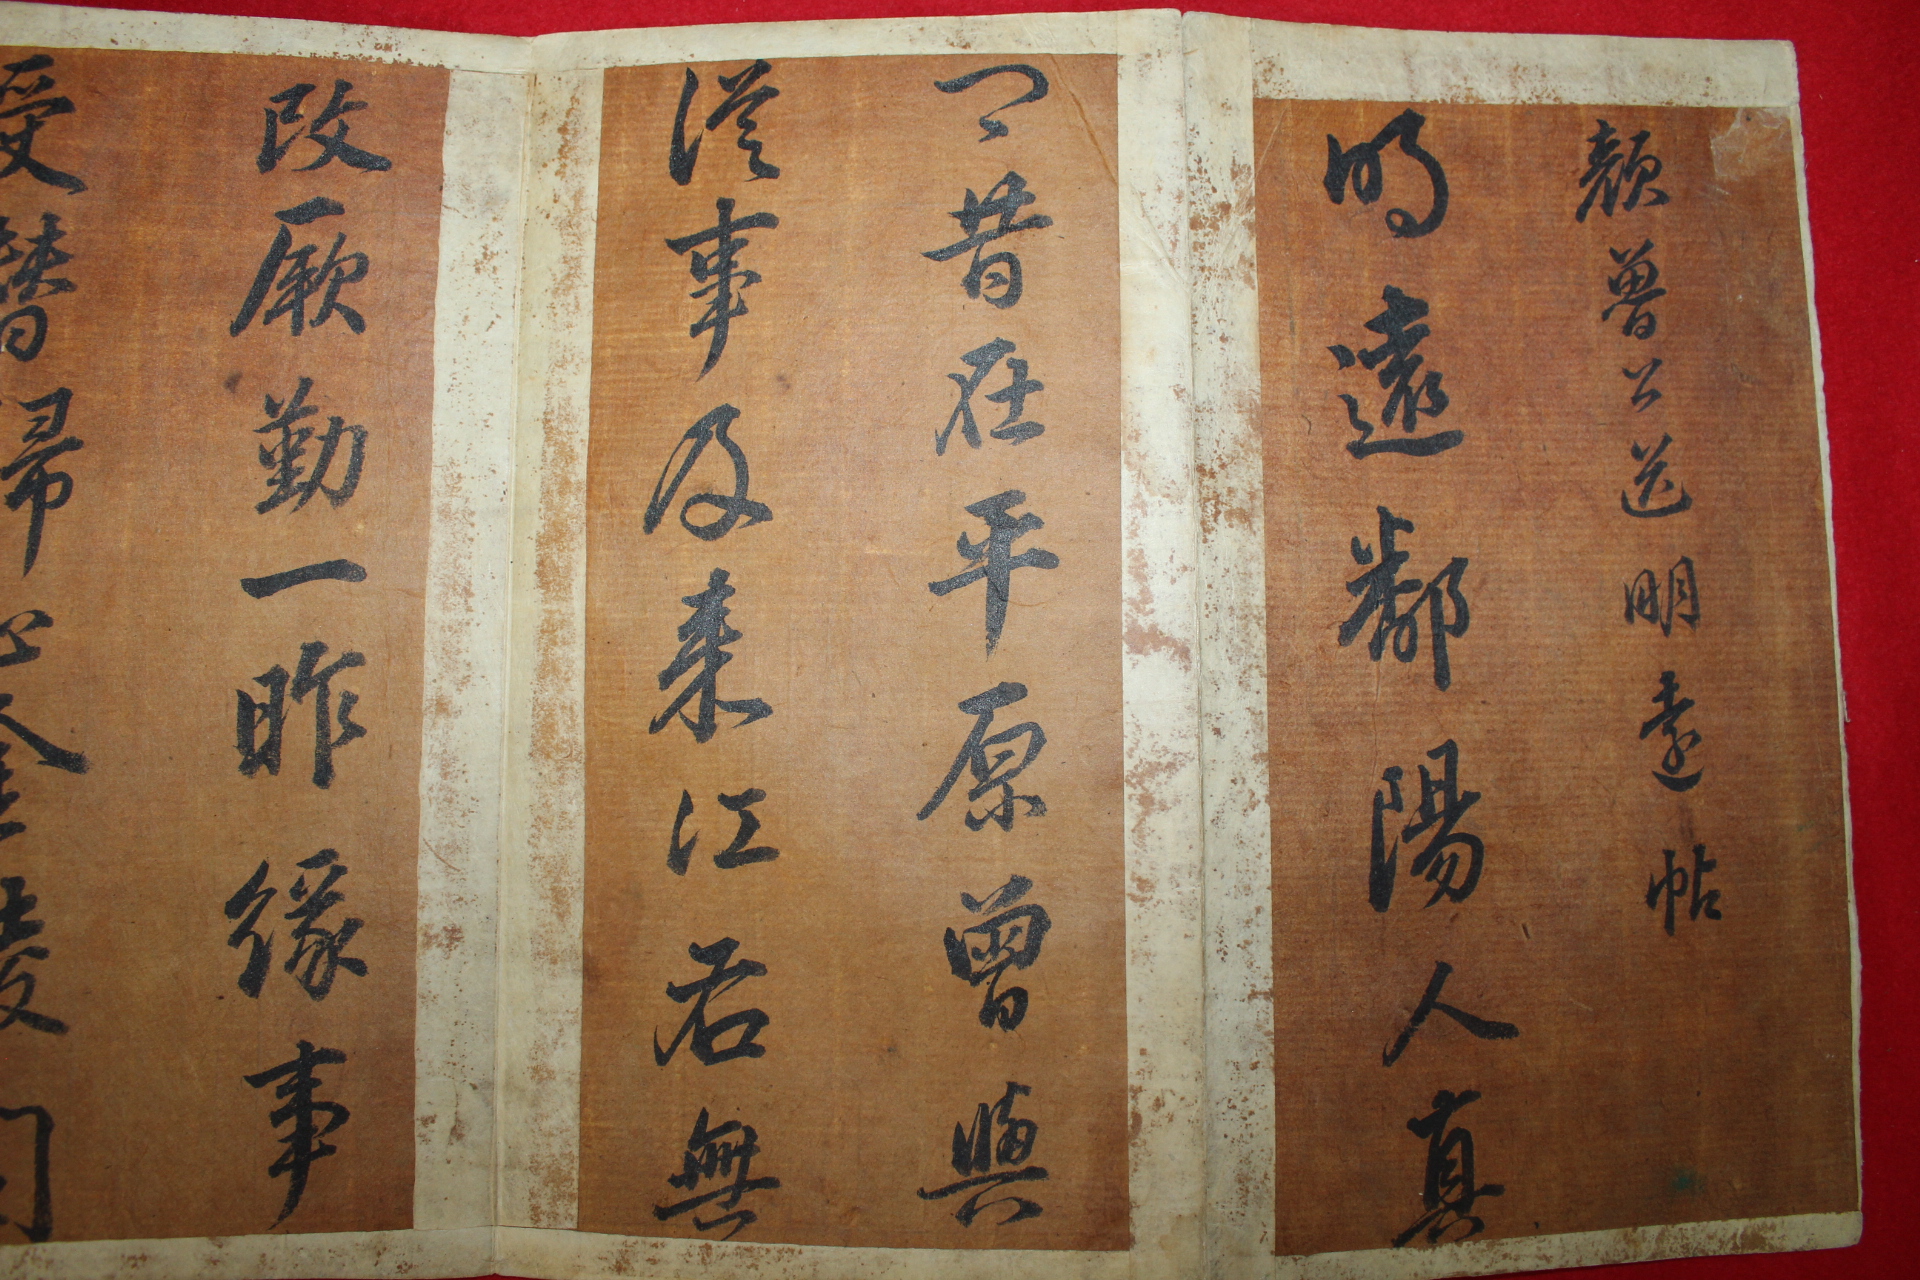 顔魯公送明遠帖
明遠鄱陽人真
卿昔在平原曾與
從事及来江右無
改厥勤一昨緣事
受替歸心金陵